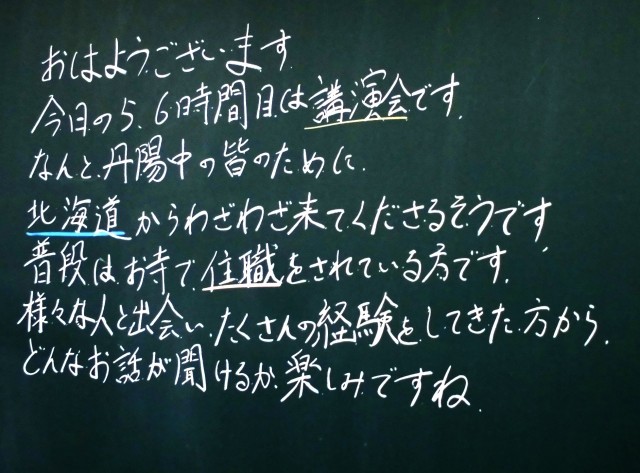 おはようございます
今日の5、6時間目は講演会です。
なんと、丹陽中の皆のために、
北海道からわざわざ来てくださるそうです
普段はお寺で住職をされている方です。
様々な人と出会い、たくさんの経験をしてきた方から、
どんなお話が聞けるか、楽しみですね。